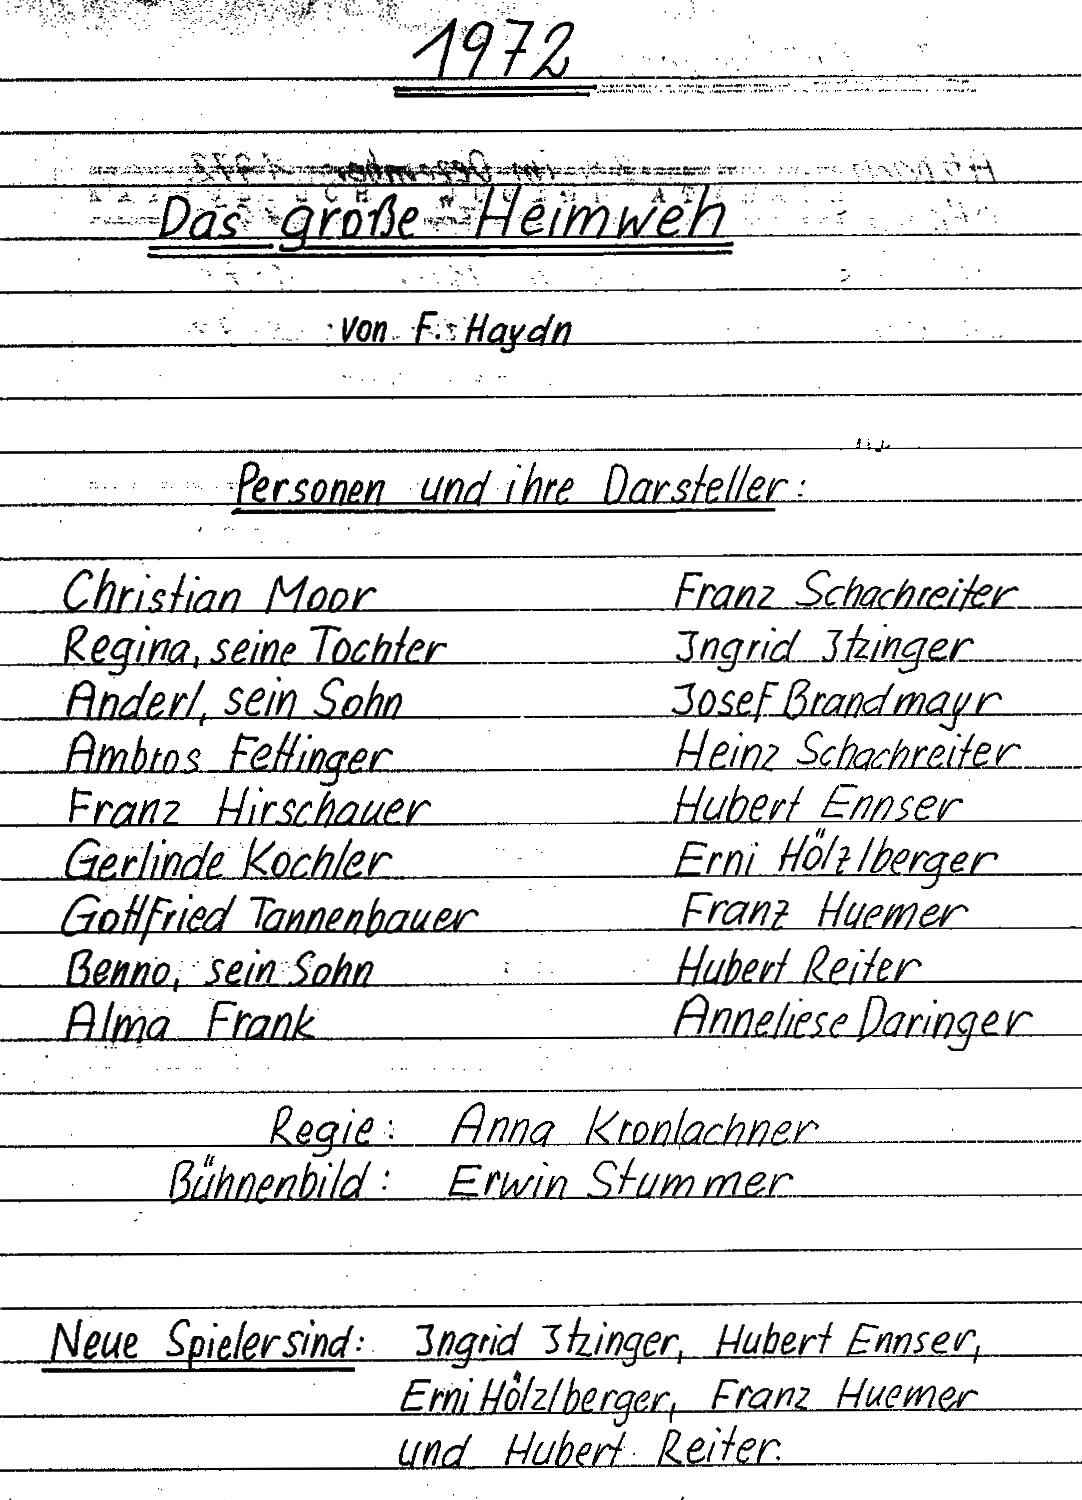 1972
Das große Heimweh
von F. Haydn
Personen und ihre Darsteller:
Christian Moor Franz Schachreiter
Regina, seine Tochter Ingrid Itzinger
Anderl, sein Sohn Josef Brandmayr
Ambros Fettinger Heinz Schachreiter
Franz Hirschauer Hubert Ennser
Gerlinde Kochler Erni Hölzlberger
Gottfried Tannenbauer Franz Huemer
Benno, sein Sohn Hubert Reiter
Alma Frank Anneliese Daringer
Regie: Anna Kronlachner
Bühnenbild: Erwin Stummer
Neue Spieler sind: Ingrid Itzinger, Hubert Ennser,
Erni Hölzlberger, Franz Huemer
und Hubert Reiter.